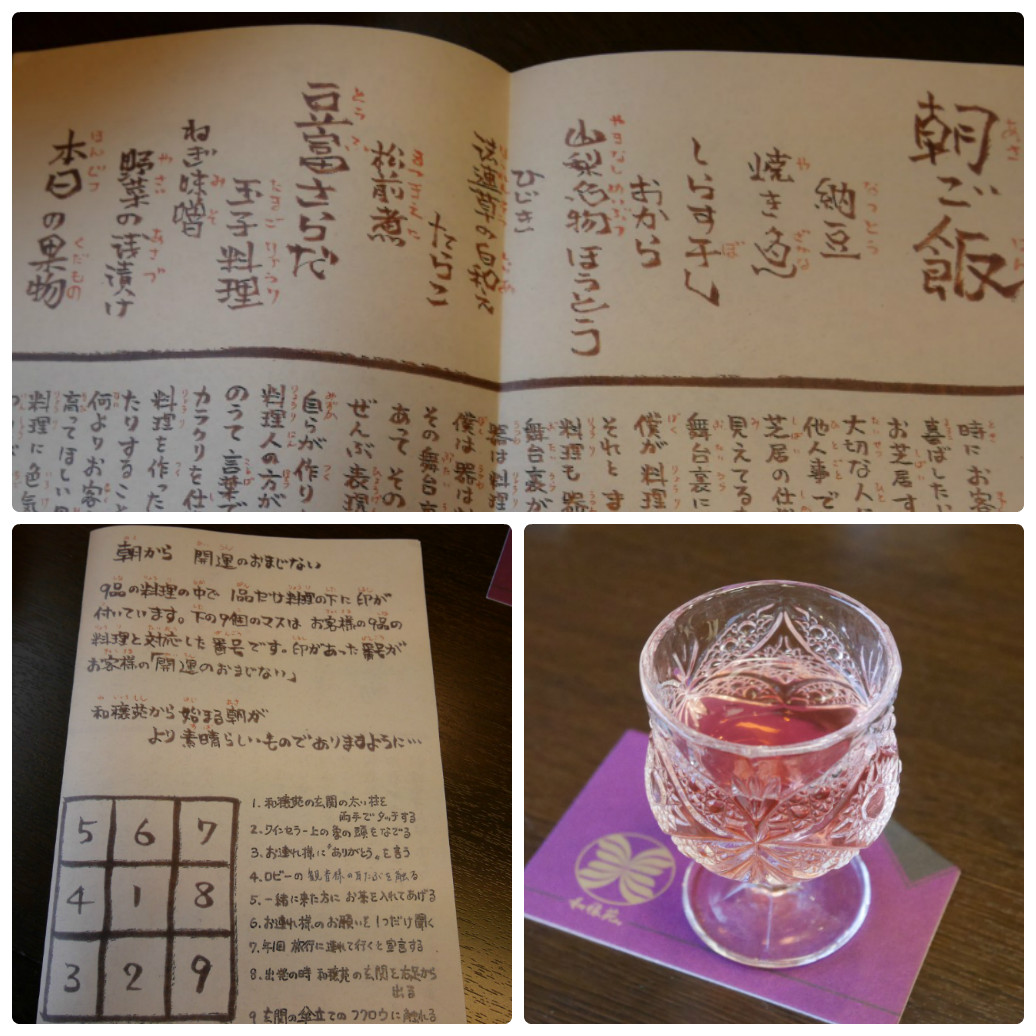 朝ご飯
納豆
焼き魚
しらす干し
おから
山梨名物 ほうとう
ひじき
たらこ
松前煮
豆富さらだ
玉子料理
ねぎ味噌
野菜の浅漬け
本日の果物
時にお客
暮ばしたい
お芝居す
大切な人
他人事で
芝居の仕
見えてる
舞台裏に
僕が料理
それとま
料理も器
舞台裏が
器は料理
僕は器は
その舞台
あって その
ぜんぶ表現
自らが作り
料理人の方が
のうて言葉で
カラクリを仕
料理を作った
たりすること
何よりお客
高ってほしい
料理に色気
朝から 開運のおまじない
9品の料理の中で 1品だけ料理の下に印が
付いています。下の9個のマスは お客様の9品の
料理と対応した番号です。印があった番号が
お客様の「開運のおまじない」
和穣苑から始まる朝が
より素晴らしいものでありますように…
5 6 7
4 1 8
3 2 9
1. 和穣苑の玄関の太い柱を
両手でタッチする
2. ワインセラー上の象の頭をなでる
3. お連れ様に"ありがとう"を言う
4. ロビーの観音様の耳たぶを触る
5. 一緒に来た方に お茶を入れてあげる
6. お連れ様のお願いを1つだけ聞く
7. 年1回 旅行に連れて行くと宣言する
8. 出発の時 和穣苑の玄関を右足から
出る
9 玄関の傘立ての フクロウに触れる
和穣苑